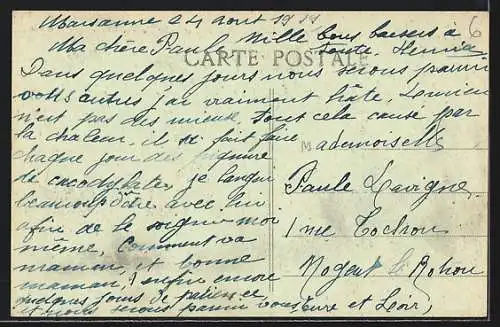 Marsanne 24 aout 1911
Mille bons baisers à
toute, Henria
Ma chère Paule
CARTE POSTALE
Dans quelques jours nous serons parmi
vous autres j'ai vraiment hâte, Lucien
n'est pas des mieux, tout cela cause par
la chaleur, il se fait faire
chaque jour des piqure
de cacodylate, je langui
beaucoup d'être avec lui
afin de le soigner moi
même, Comment va
maman, et bonne
maman, enfin encore
quelques jours de patience
et nous serons parmi vous
Mademoiselle
Paule Lavigne
1 rue Tochon
Nogent le Rotrou
Eure et Loir,
6